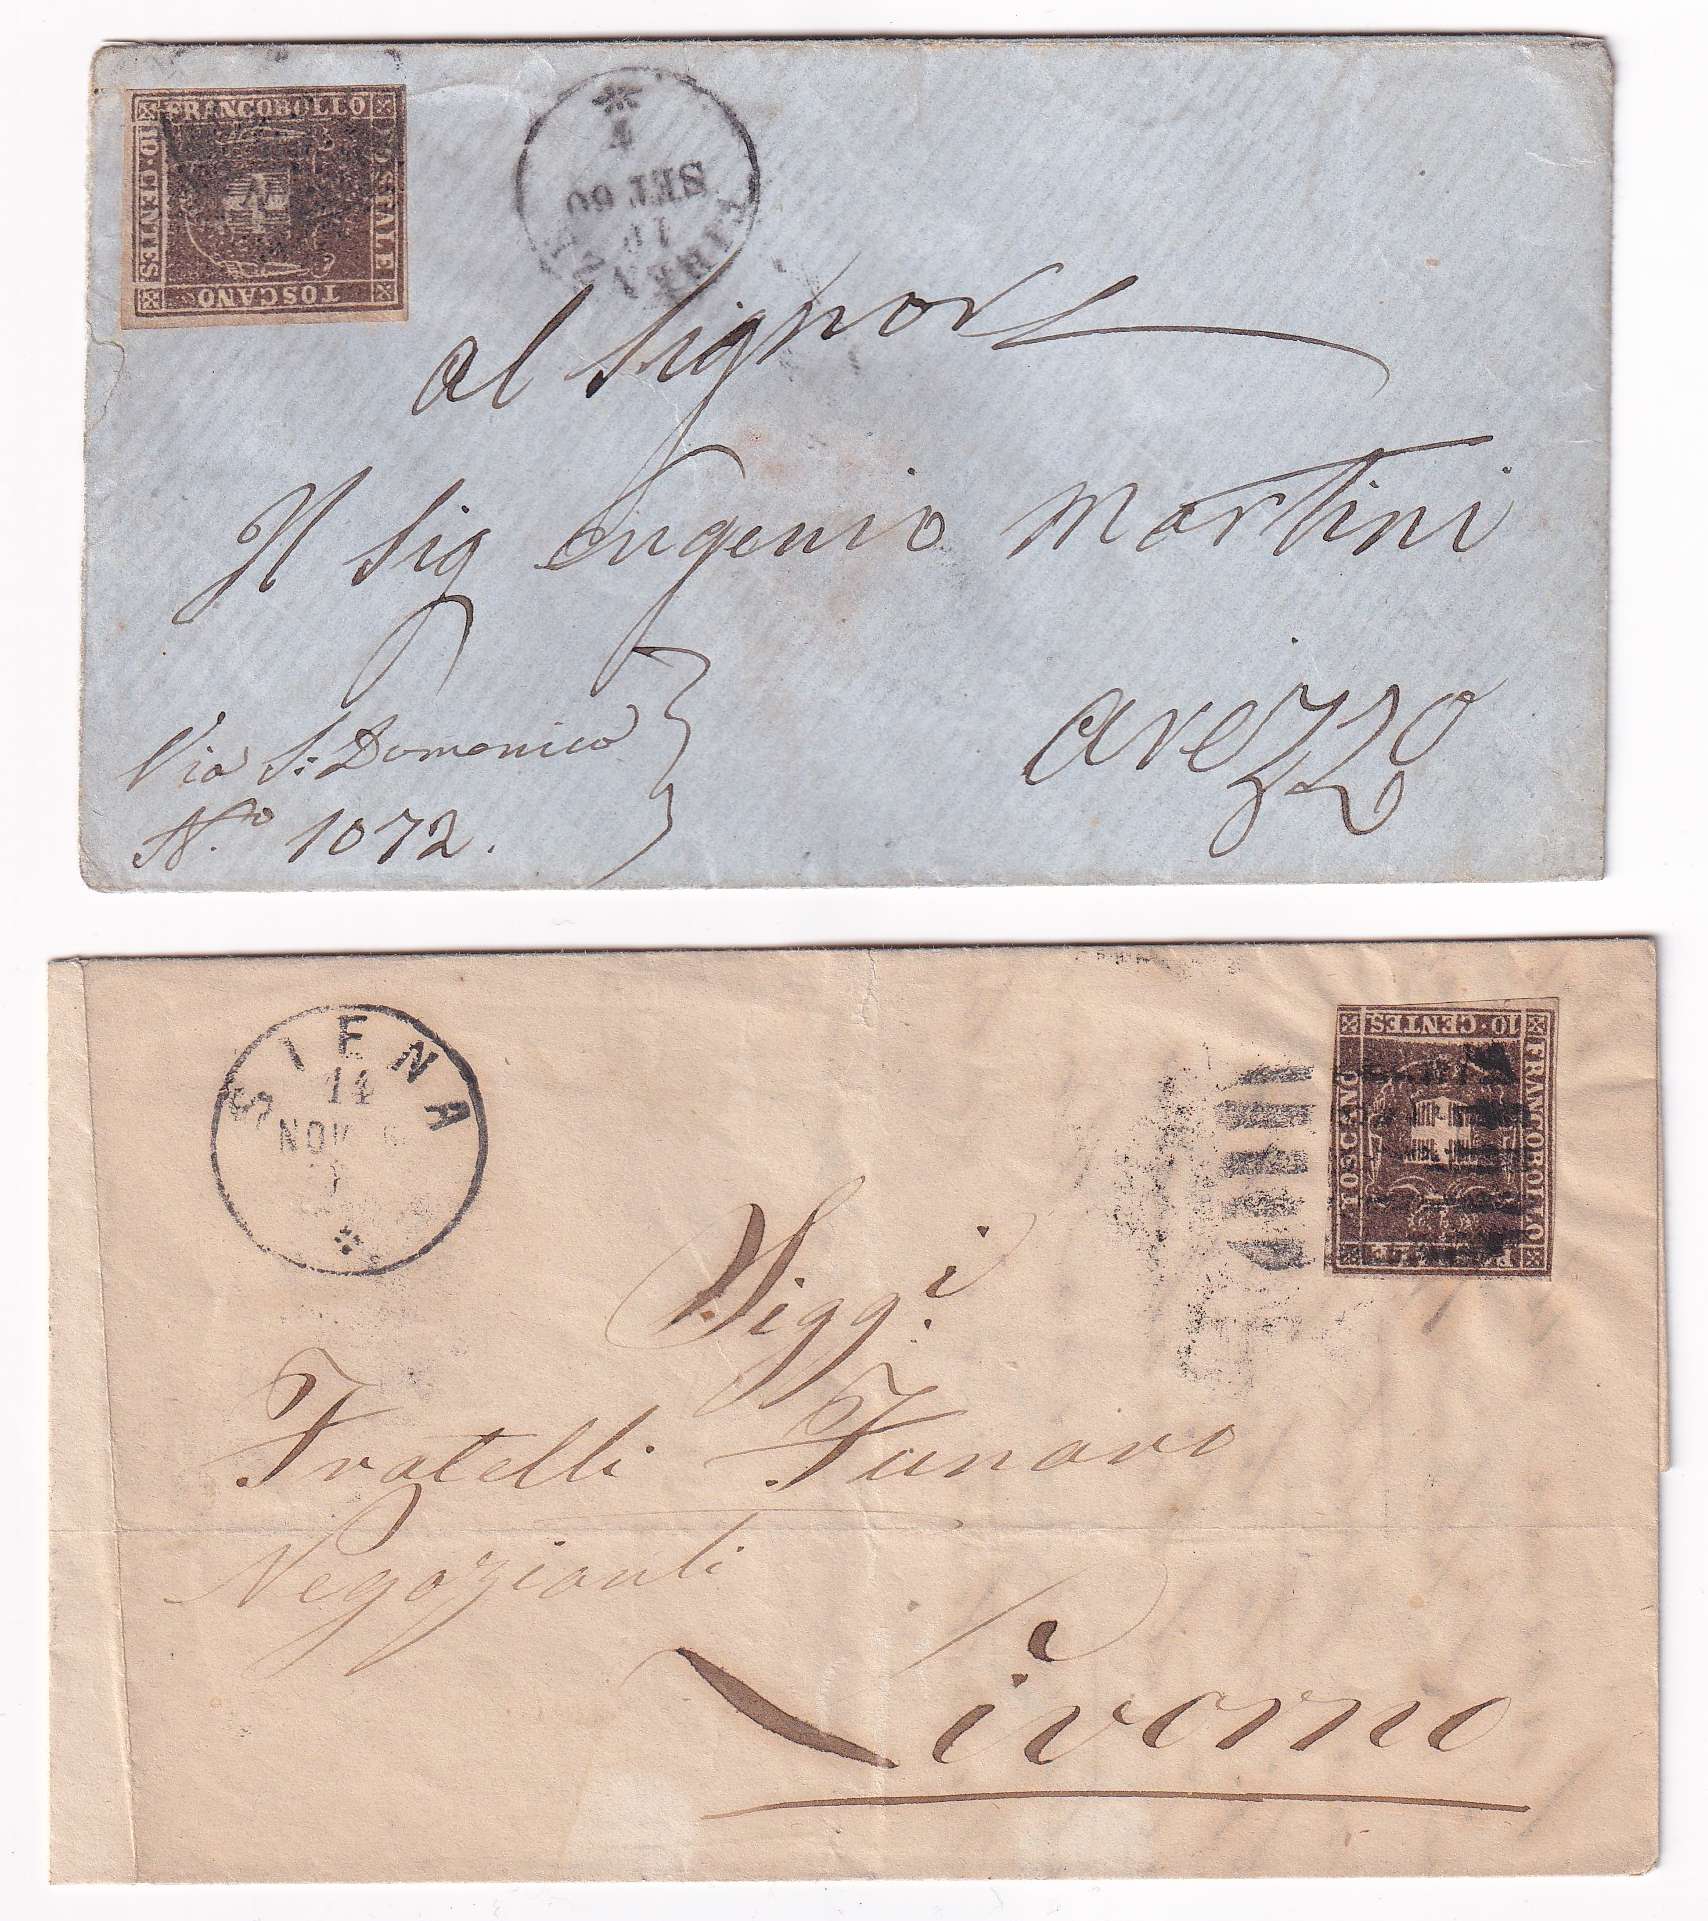 FRANCOBOLLO
POSTALE
TOSCANO
10 · CENTES
SET 60
al Signore
Il Sig Eugenio Martini
Arezzo
Via S: Domenico
N.o 1072.
SIENA
14
NOV
FRANCOBOLLO
TOSCANO
10 · CENTES
Sigg.i
Fratelli Funaro
Negozianti
Livorno